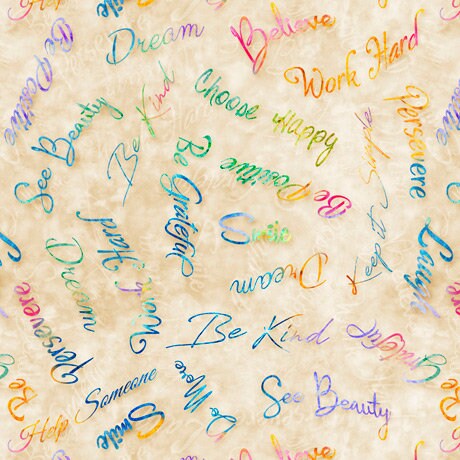 Smile
Dream
Believe
Be Positive
Work Hard
Choose Happy
Be Kind
See Beauty
Persevere
Keep it Simple
Be Positive
Be Grateful
Smile
Dream
Laugh
Work Hard
Dream
Persevere
Be Kind
Grateful
Be
Help Someone
Smile
Do More
See Beauty
Believe